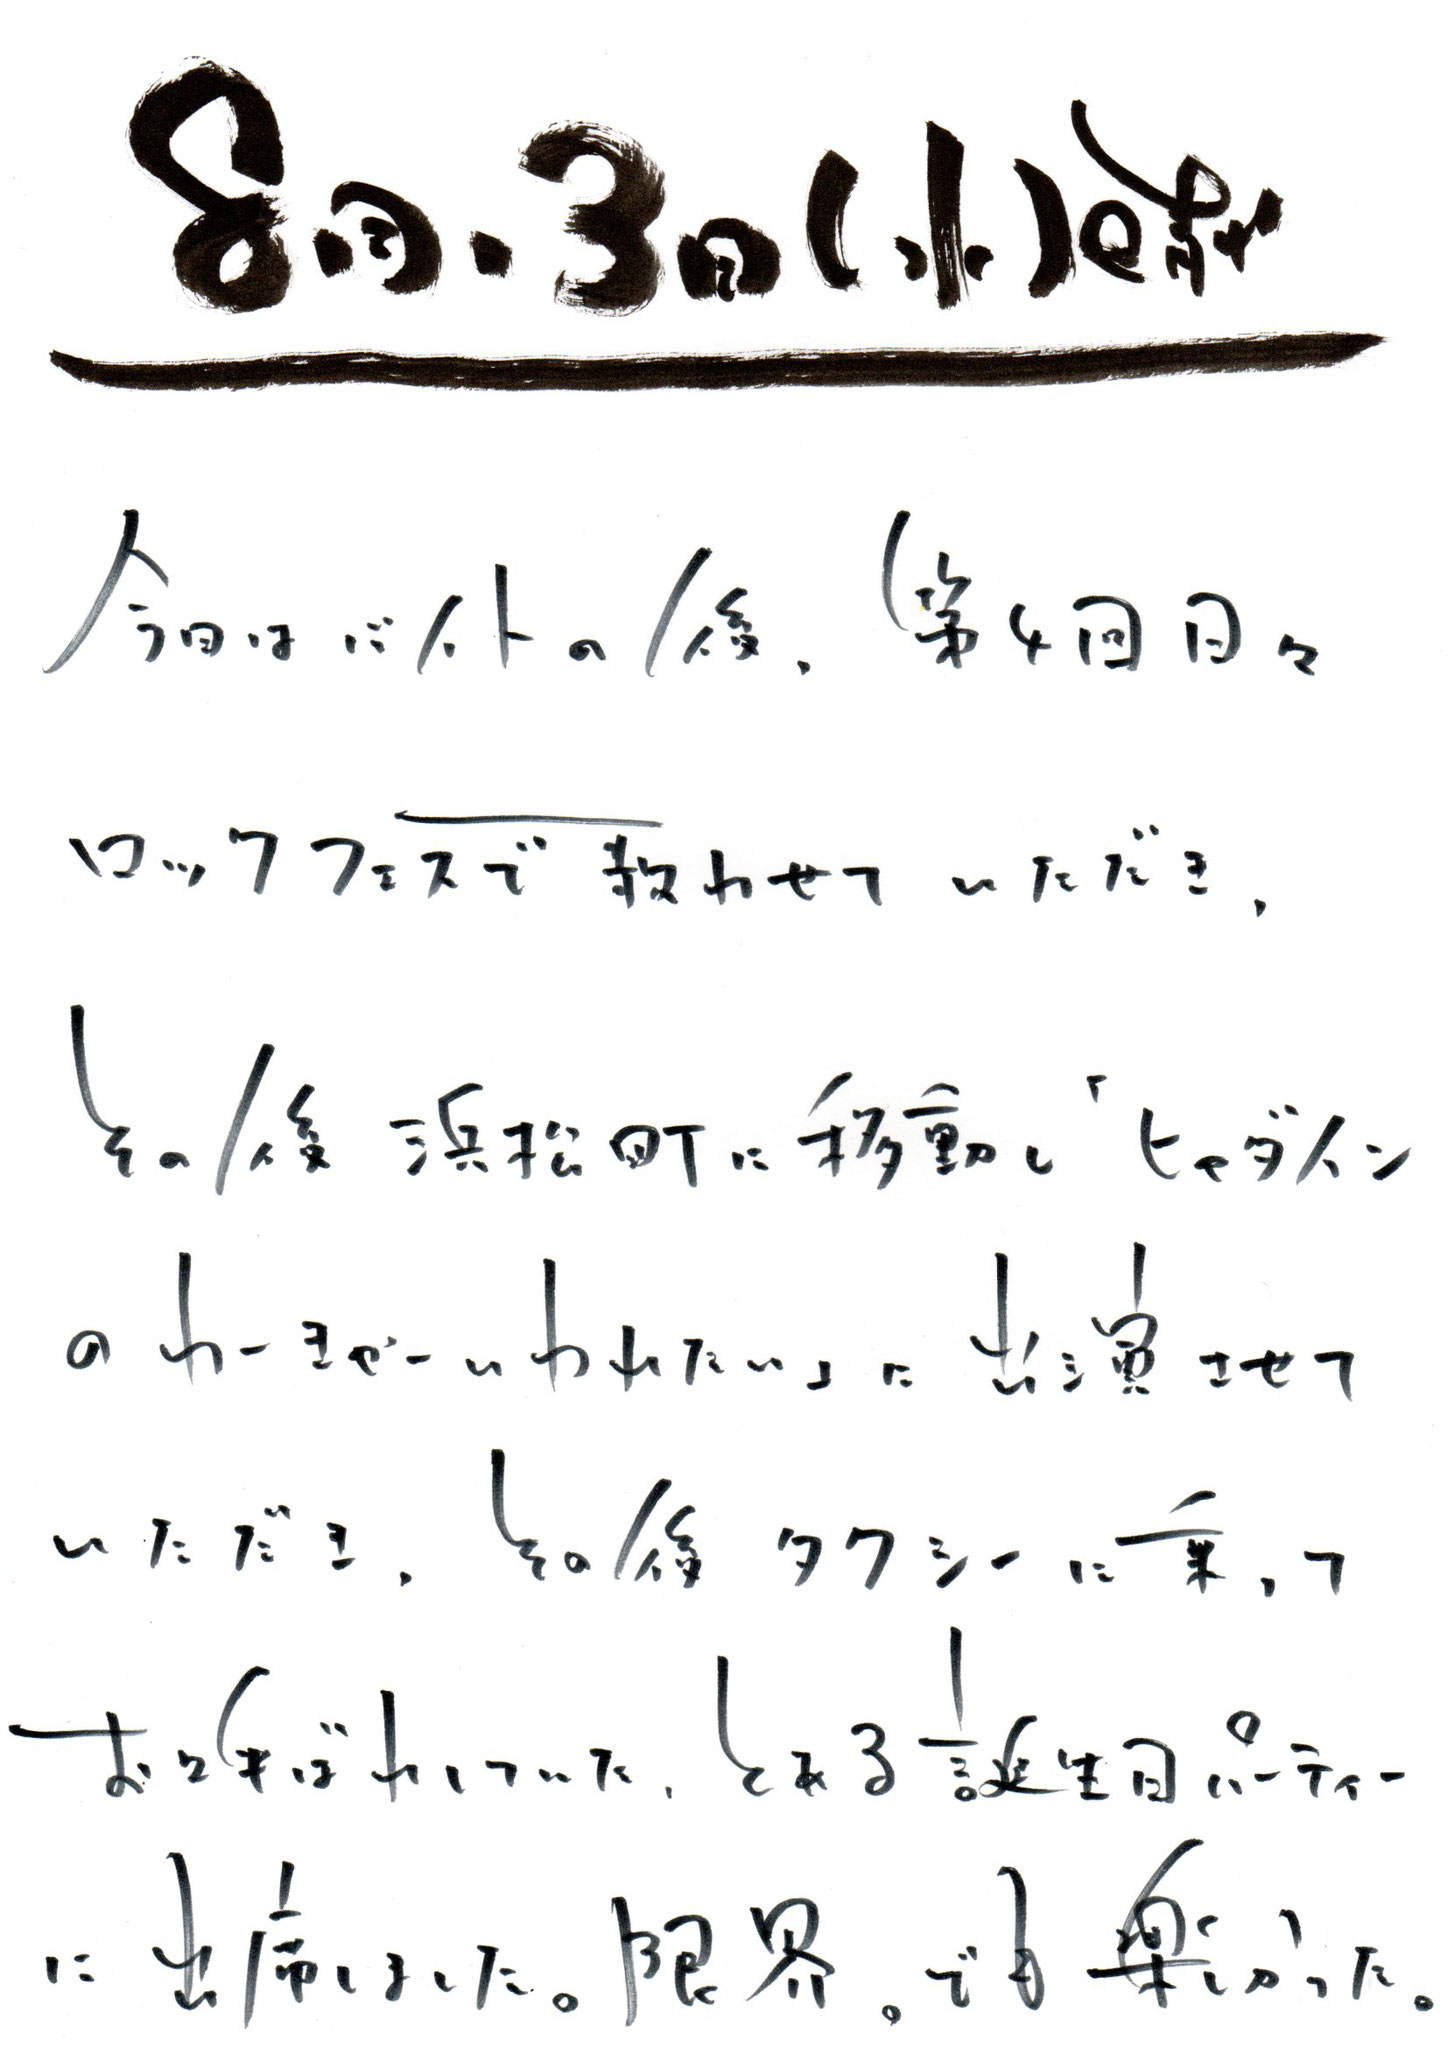 8月.3日(水)
今日はバイトの後、第4回日々
ロックフェスで歌わせていただき、
その後浜松町に移動し「ヒャダイン
のわーきゃーいわれたい」に出演させて
いただき、その後タクシーに乗って
およばれしていた、とある誕生日パーティー
に出席しました。限界。でも楽しかった。